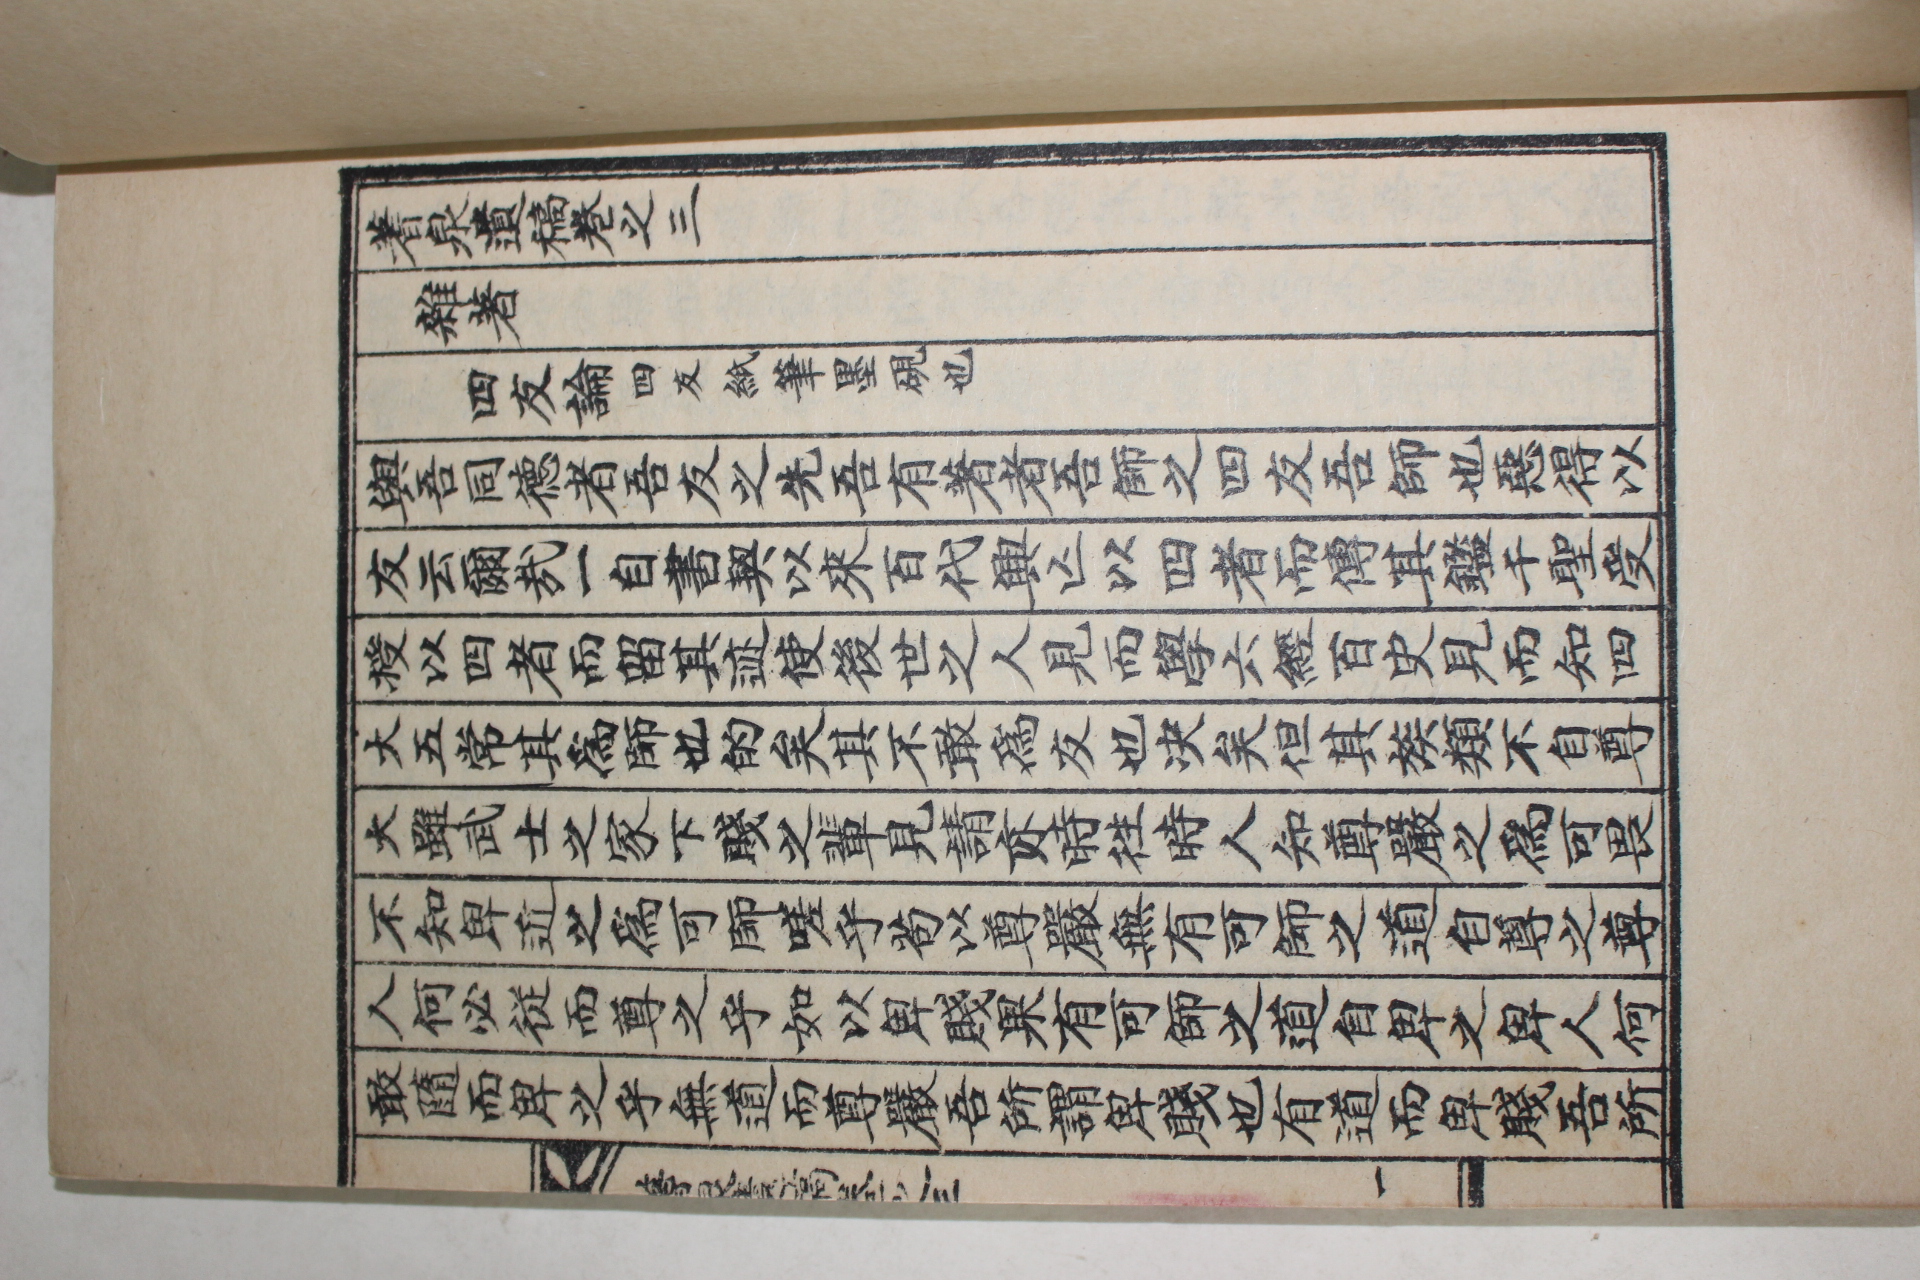 泉遺稿卷之三
雜著
四友論 四友紙筆墨硯也
與吾同德者吾友之先吾有著者吾師之四友吾師也惡得以
友云爾哉一自書契以來百代興亡以四者而傳其鑑千聖受
授以四者而留其迹使後世之人見而學六經百史見而知四
大五常其爲師也的矣其不敢爲友也決矣但其族類不自尊
大雖武士之家下賤之輩見請時往時人知尊嚴之爲可畏
不知卑近之爲可師嗟乎苟以尊嚴無有可師之道自尊之尊
人何必從而尊之乎如以卑賤果有可師之道自卑之卑人何
敢隨而卑之乎無道而尊嚴吾所謂卑賤也有道而卑賤吾所
一